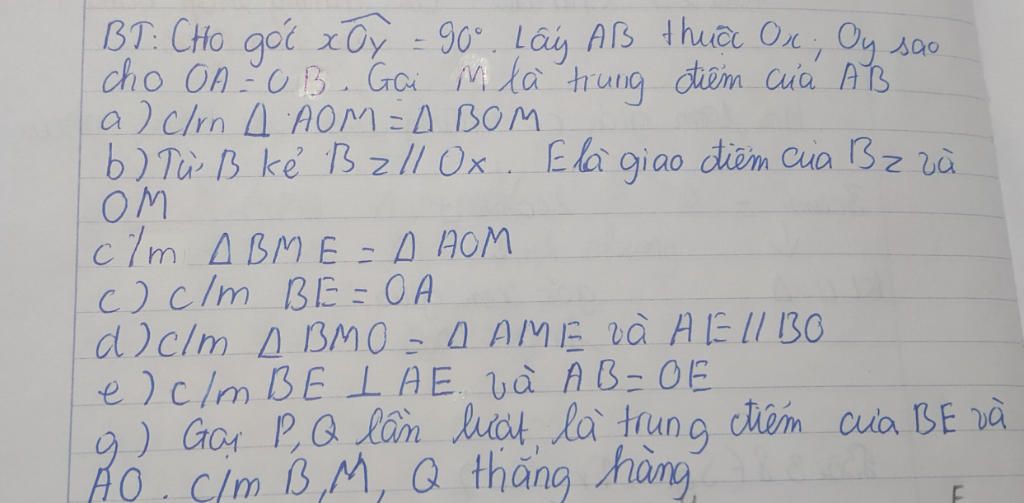 BT: CHo góc xOy = 90°. Lấy AB thuộc Ox; Oy sao
cho OA = OB. Gọi M là trung điểm của AB
a) c/m Δ AOM = Δ BOM
b) Từ B kẻ Bz // Ox. E là giao điểm của Bz và
OM
c/m Δ BME = Δ AOM
c) c/m BE = OA
d) c/m Δ BMO = Δ AME và AE // BO
e) c/m BE ⊥ AE và AB = OE
g) Gọi P, Q lần lượt là trung điểm của BE và
AO. c/m B, M, Q thẳng hàng
E